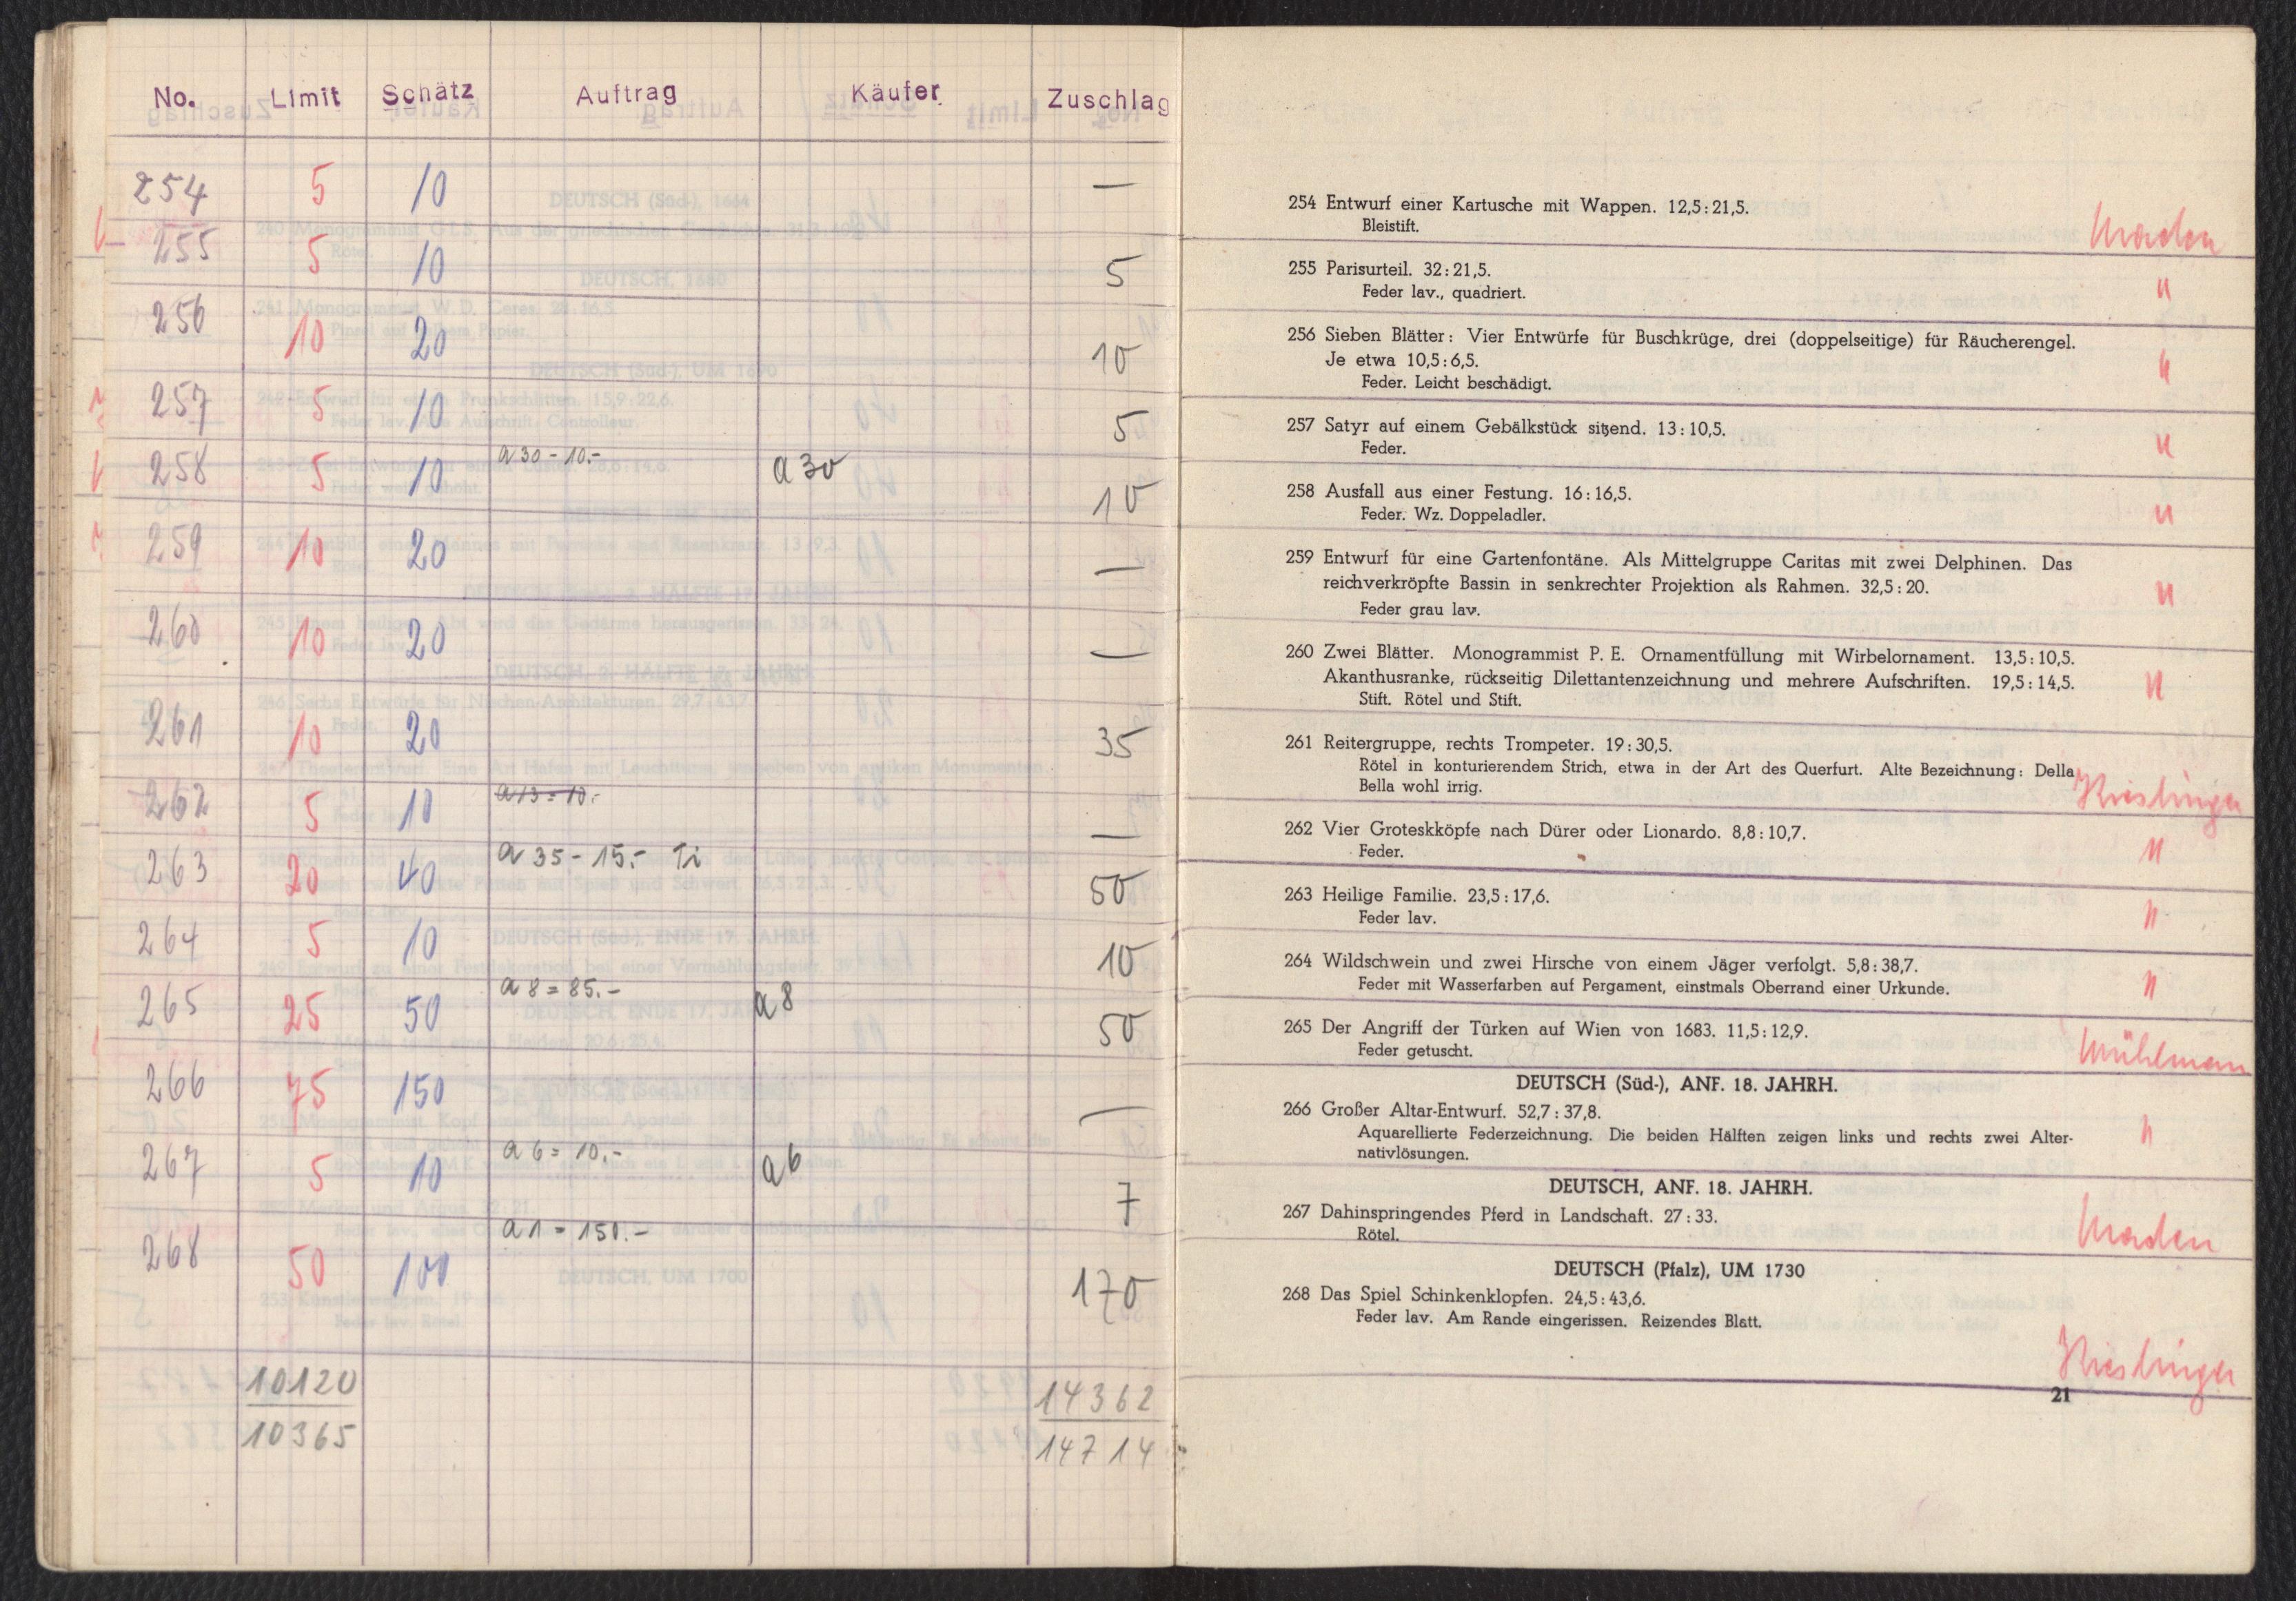 No. Limit Schätz Auftrag Käufer Zuschlag
254 5 10 —
255 5 10 5
256 10 20 10
257 5 10 5
258 5 10 a 30 - 10.- a 30 10
259 10 20 —
260 10 20 —
261 10 20 35
262 5 10 a 13 = 10.- —
263 20 40 a 35 - 15.- Ti 50
264 5 10 10
265 25 50 a 8 = 85.- a 8 50
266 75 150 —
267 5 10 a 6 = 10.- a 6 7
268 50 100 a 1 = 150.- 170
10120 14362
10365 14714
254 Entwurf einer Kartusche mit Wappen. 12,5:21,5.
Bleistift.
255 Parisurteil. 32:21,5.
Feder lav., quadriert.
256 Sieben Blätter: Vier Entwürfe für Buschkrüge, drei (doppelseitige) für Räucherengel.
Je etwa 10,5:6,5.
Feder. Leicht beschädigt.
257 Satyr auf einem Gebälkstück sitzend. 13:10,5.
Feder.
258 Ausfall aus einer Festung. 16:16,5.
Feder. Wz. Doppeladler.
259 Entwurf für eine Gartenfontäne. Als Mittelgruppe Caritas mit zwei Delphinen. Das
reichverkröpfte Bassin in senkrechter Projektion als Rahmen. 32,5:20.
Feder grau lav.
260 Zwei Blätter. Monogrammist P. E. Ornamentfüllung mit Wirbelornament. 13,5:10,5.
Akanthusranke, rückseitig Dilettantenzeichnung und mehrere Aufschriften. 19,5:14,5.
Stift. Rötel und Stift.
261 Reitergruppe, rechts Trompeter. 19:30,5.
Rötel in konturierendem Strich, etwa in der Art des Querfurt. Alte Bezeichnung: Della
Bella wohl irrig. Kieslinger
262 Vier Groteskköpfe nach Dürer oder Lionardo. 8,8:10,7.
Feder. "
263 Heilige Familie. 23,5:17,6.
Feder lav. "
264 Wildschwein und zwei Hirsche von einem Jäger verfolgt. 5,8:38,7.
Feder mit Wasserfarben auf Pergament, einstmals Oberrand einer Urkunde. "
265 Der Angriff der Türken auf Wien von 1683. 11,5:12,9.
Feder getuscht. Mühlman
DEUTSCH (Süd-), ANF. 18. JAHRH.
266 Großer Altar-Entwurf. 52,7:37,8.
Aquarellierte Federzeichnung. Die beiden Hälften zeigen links und rechts zwei Alter- "
nativlösungen.
DEUTSCH, ANF. 18. JAHRH.
267 Dahinspringendes Pferd in Landschaft. 27:33.
Rötel.
DEUTSCH (Pfalz), UM 1730
268 Das Spiel Schinkenklopfen. 24,5:43,6.
Feder lav. Am Rande eingerissen. Reizendes Blatt.
Kieslinger
21